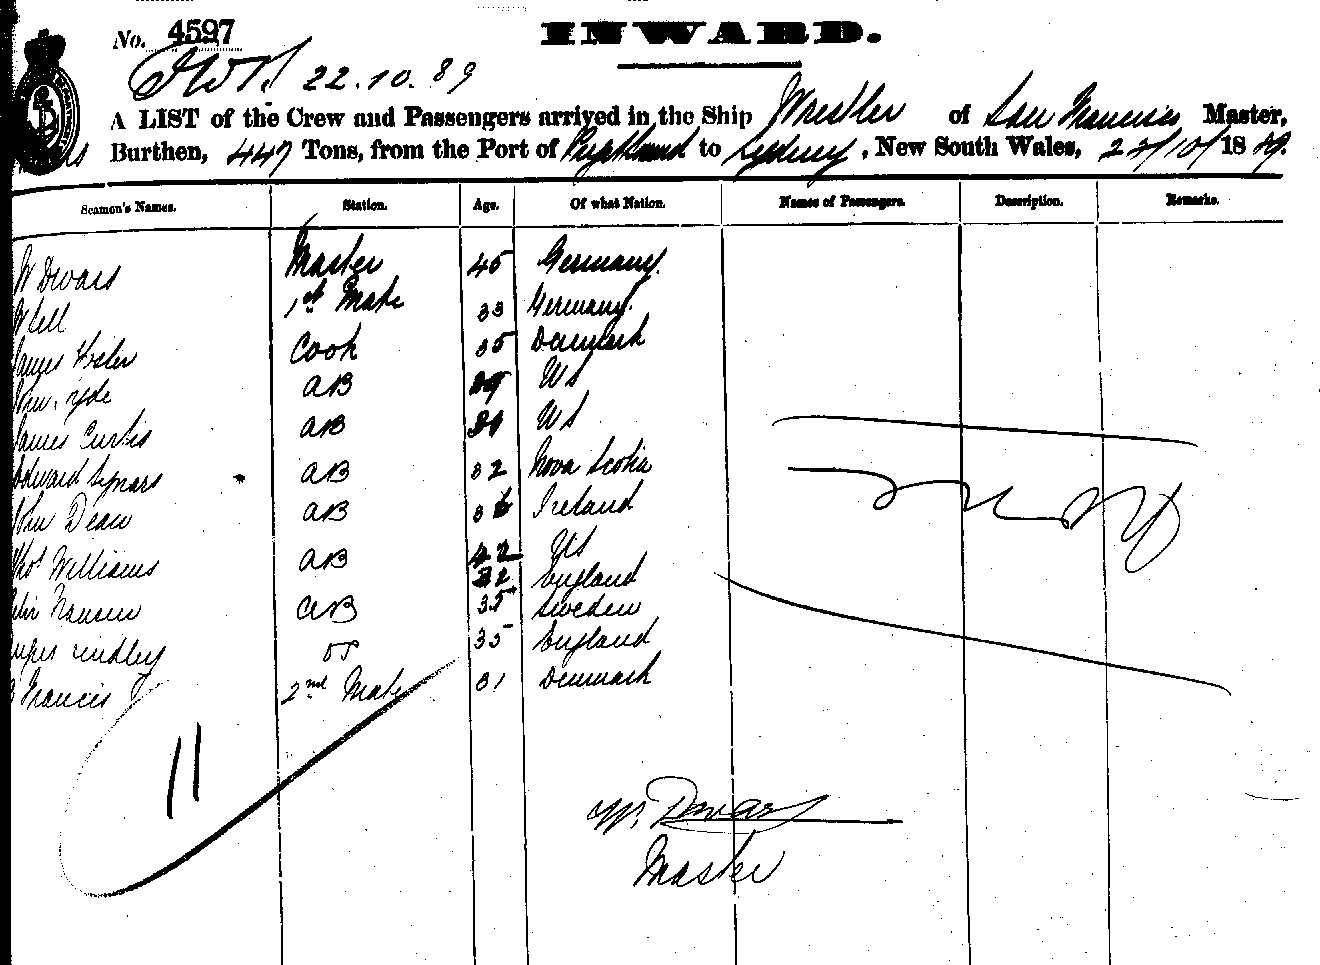 No. 4597 INWARD.
22.10.89
A LIST of the Crew and Passengers arrived in the Ship Wrestler of San Francisco Master,
Burthen, 447 Tons, from the Port of to Sydney, New South Wales, 22/10/1889.
Seamen's Names. Station. Age. Of what Nation. Names of Passengers. Description. Remarks.
W Dwars Master 45 Germany.
1st Mate 33 Germany.
James Cook 35 Denmark
AB US
James Curtis AB US
Edward AB 32 Nova Scotia
John Dean AB Ireland
Thos Williams AB 42 US
32 England
AB 35 Sweden
Lindley OS 35 England
Francis 2nd Mate 31 Denmark
11
W. Dwars
Master